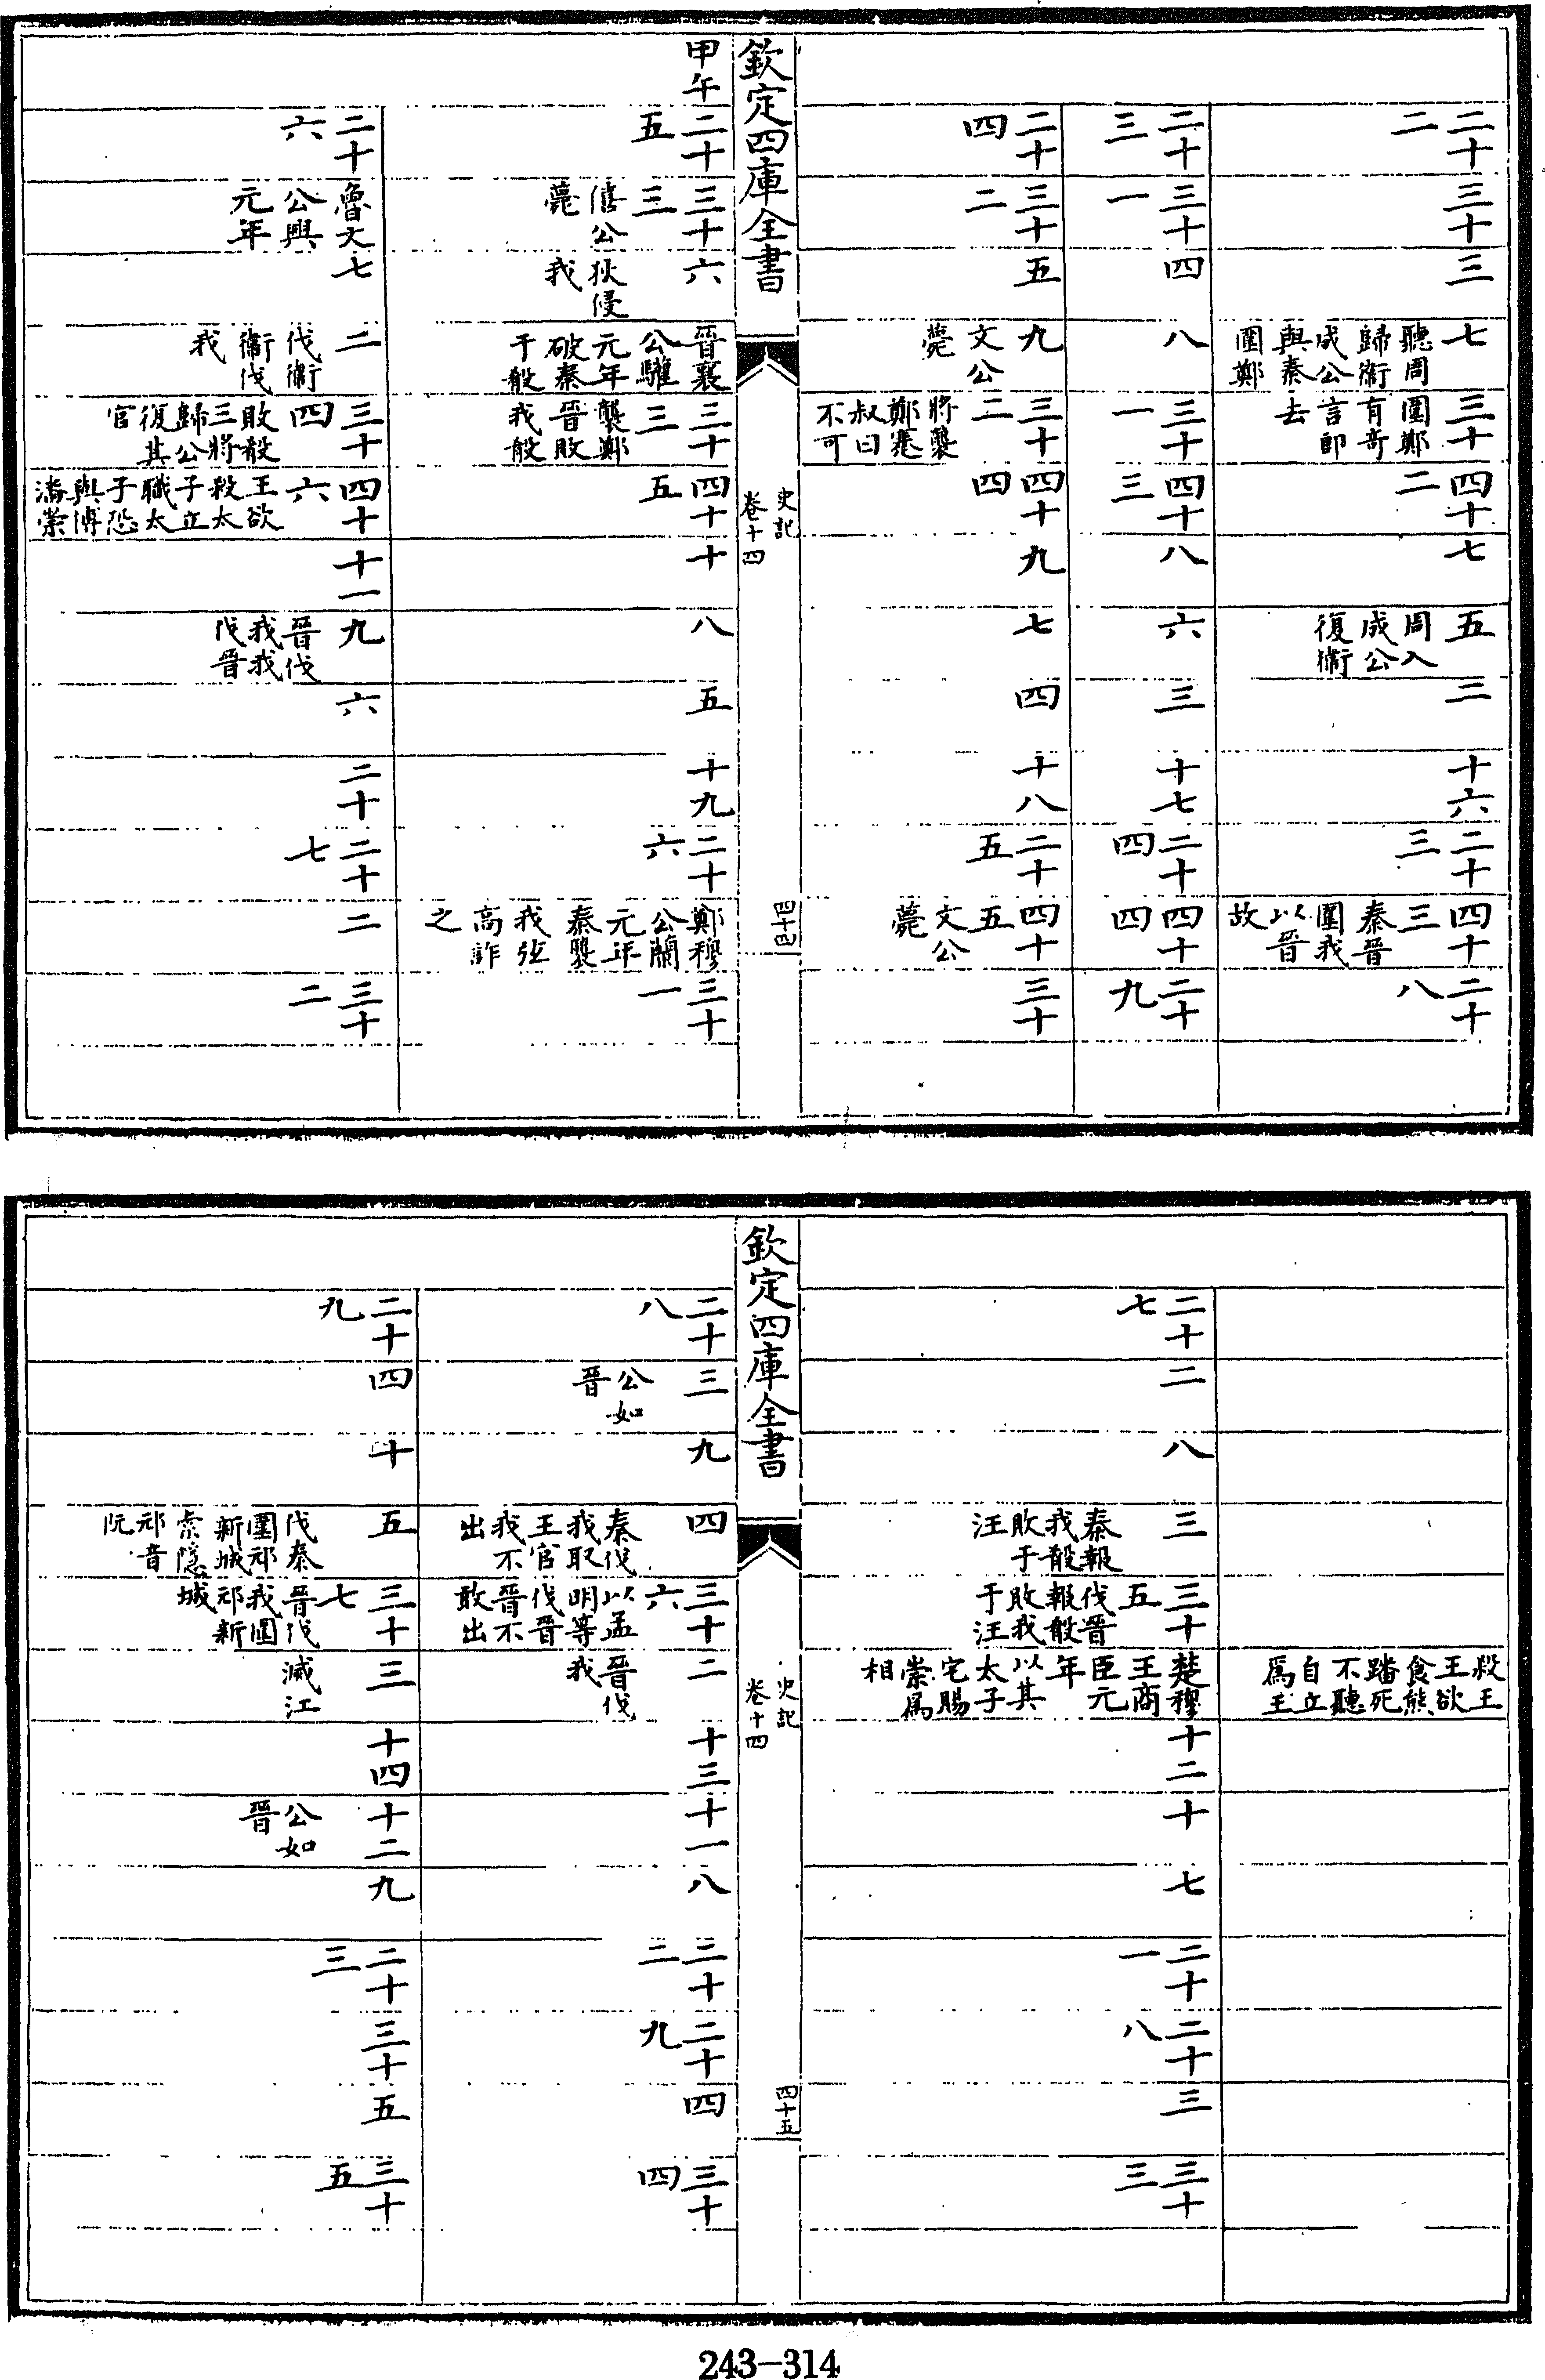 二十二
三十
三
七 聽周歸衛成公與秦圍鄭
三十 圍鄭有奇言即去
四十二
七
五 周入成公復衛
三
十六
二十三
四十三 秦晉圍我以晉故
二十八
二十三
三十一
四
八
三十一
四十三
八
六
三
十七
二十四
四十四
二十九
二十四
三十二
五
九 文公薨
三十二 將襲鄭蹇叔曰不可
四十四
九
七
四
十八
二十五
四十五 文公薨
三十
欽定四庫全書
史記
卷十四
四十四
甲午
二十五
三十三 僖公薨
六 狄侵我
晉襄公驩元年破秦于殽
三十三 襲鄭晉敗我殽
四十五
十
八
五
十九
二十六
鄭穆公蘭元年秦襲我弦高詐之
三十一
二十六
魯文公興元年
七
二 伐衛衛伐我
三十四 敗殽三將歸公復其官
四十六 王欲殺太子立職太子恐與傅潘崇
十一
九 晉伐我我伐晉
六
二十
二十七
二
三十二
殺王王欲食熊蹯死不聽自立爲王
二十七
二
八
三 秦報我殽敗于汪
三十五 伐晉報殽敗我于汪
楚穆王商臣元年以其太子宅賜崇爲相
十二
十
七
二十一
二十八
三
三十三
欽定四庫全書
史記
卷十四
四十五
二十八
三 公如晉
九
四 秦伐我取王官我不出
三十六 以孟明等伐晉晉不敢出
二 晉伐我
十三
十一
八
二十二
二十九
四
三十四
二十九
四
十
五 伐秦圍邧新城索隱邧音阮
三十七 晉伐我圍邧新城
三 滅江
十四
十二 公如晉
九
二十三
三十
五
三十五
243-314